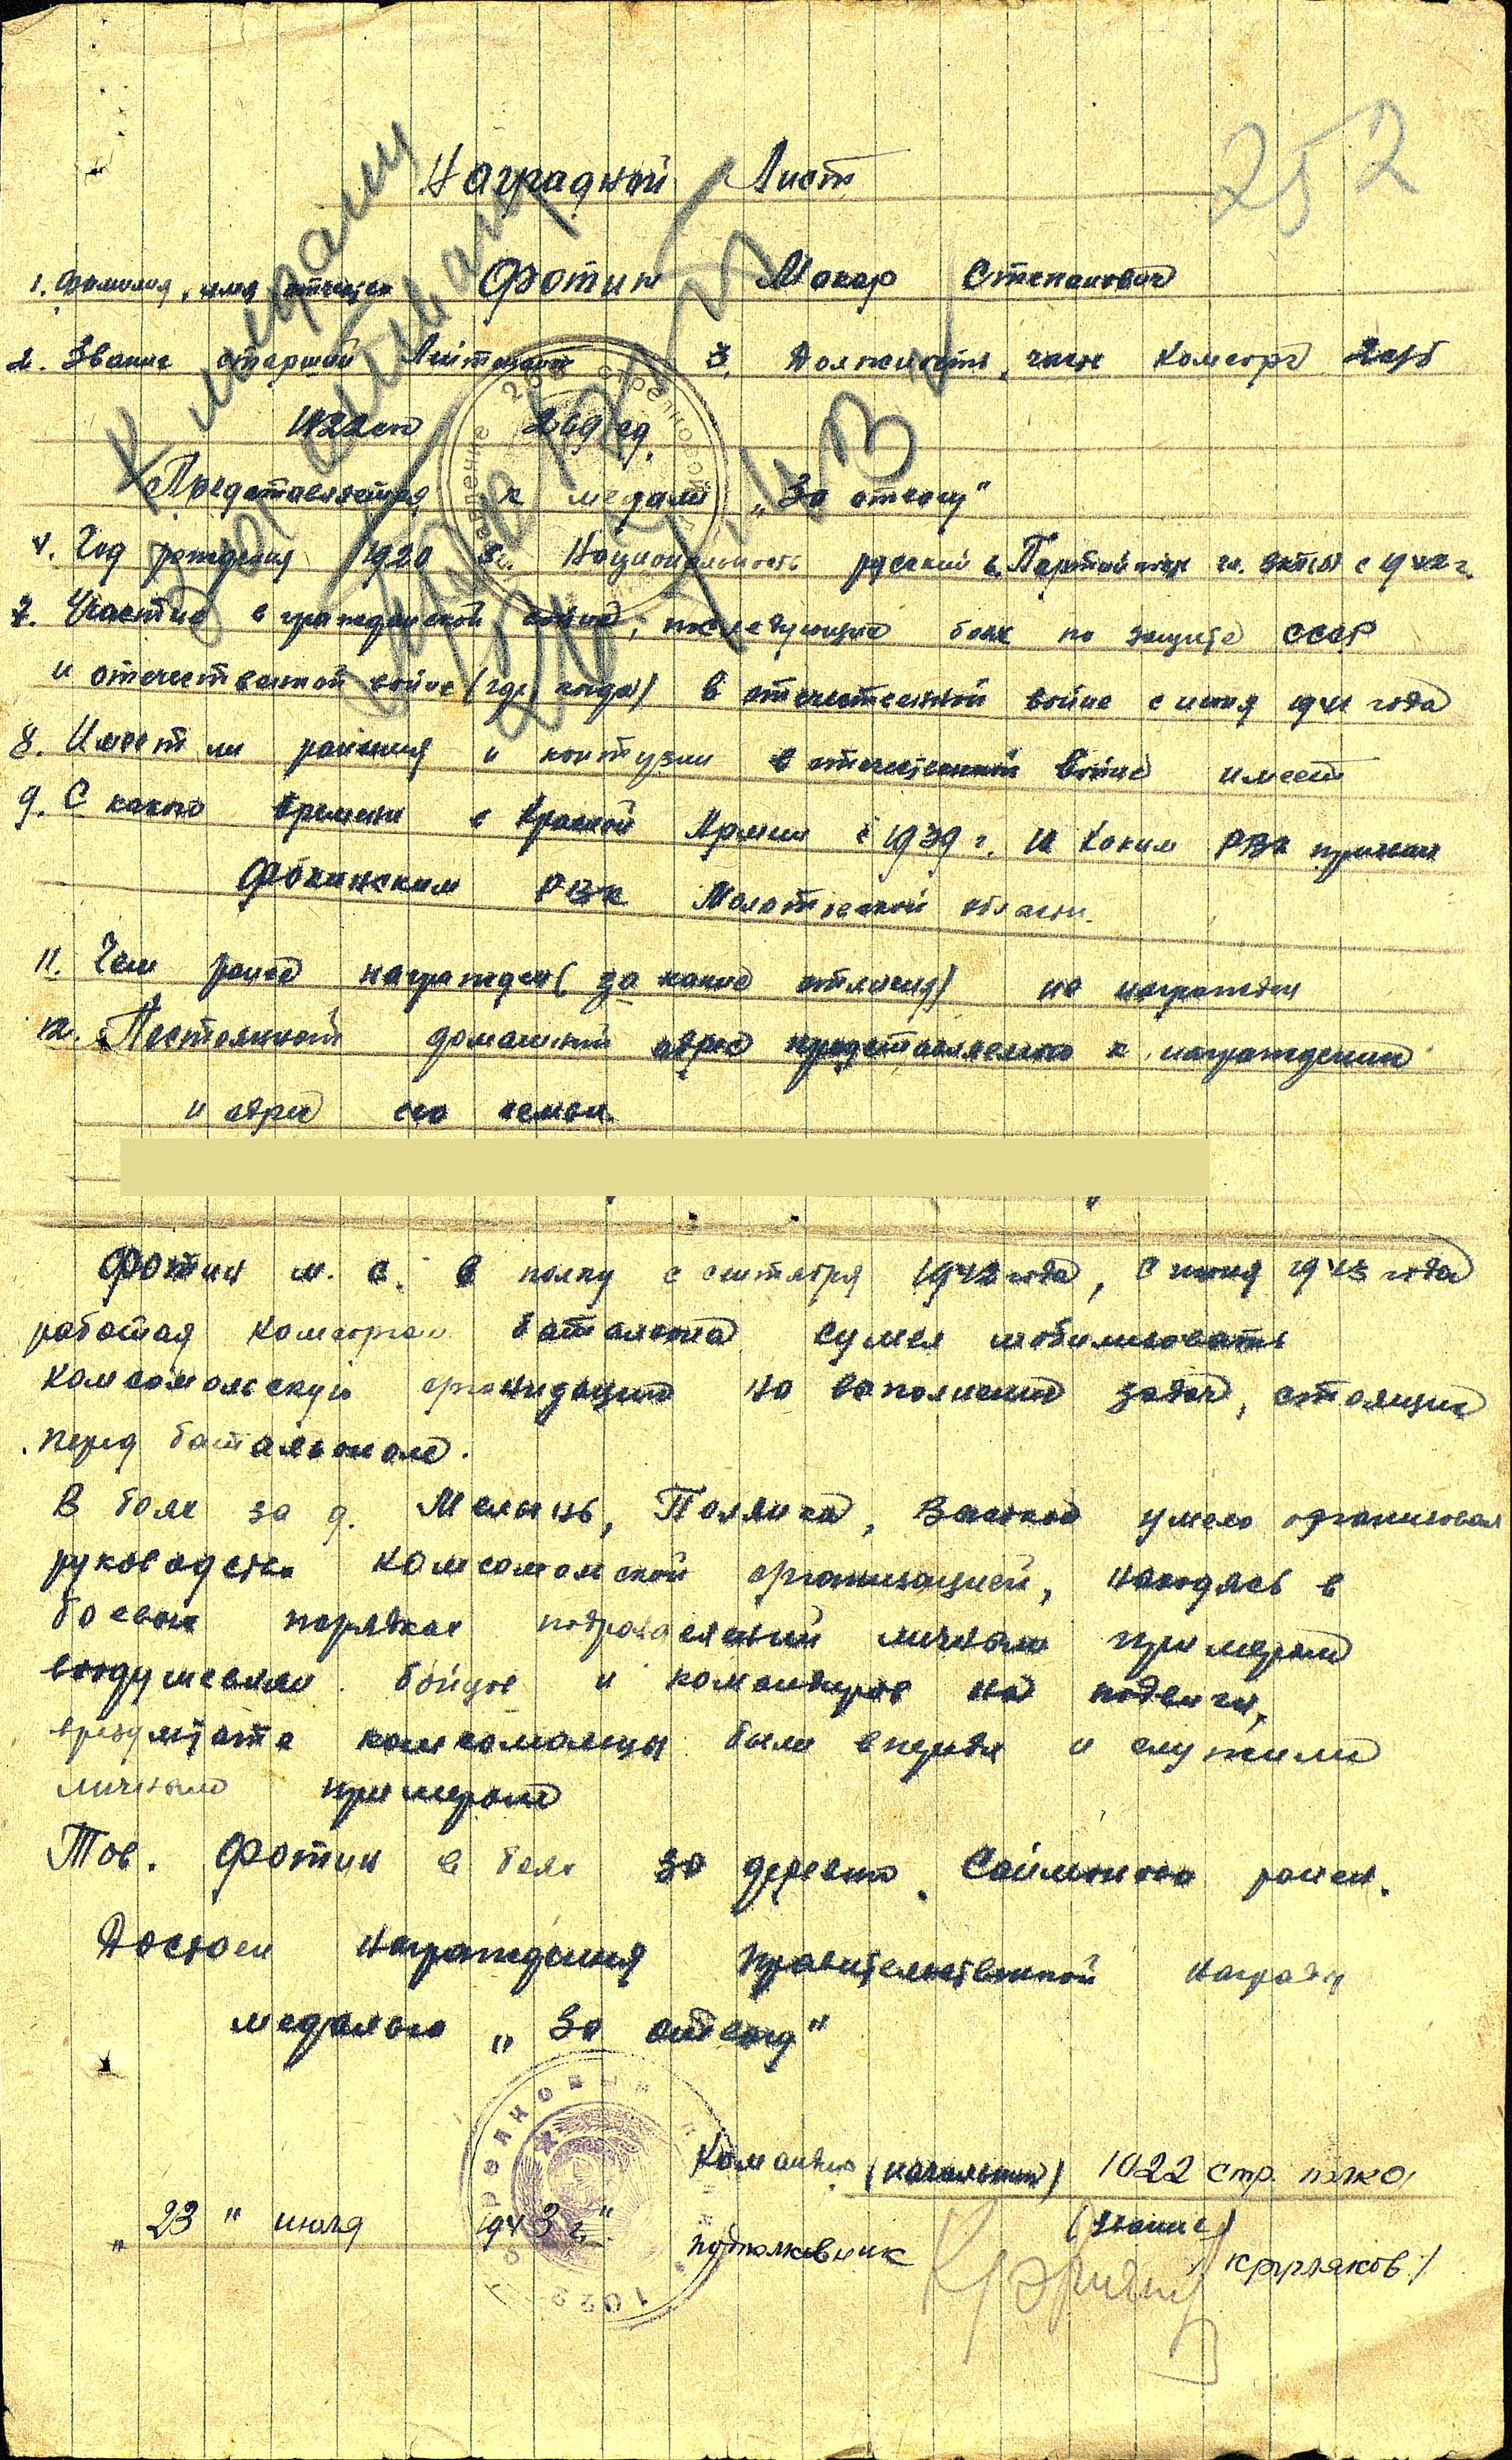 252
Наградной Лист
К медали
За отвагу
1. Фамилия, имя отчество Фотин Макар Степанович
2. Звание старший Лейтенант 3. Должность, часть Комсорг 2 сб
1022 сп 269 сд.
Представляется к медали „За отвагу"
4. Год рождения 1920 5. Национальность русский 6. Партийность чл. ВКП(б) с 1942 г.
7. Участие в гражданской войне, последующие боях по защите СССР
и отечественной войне (где, когда) в отечественной войне с июня 1941 года
8. Имеет ли ранения и контузии в отечественной войне имеет
9. С какого времени в Красной Армии с 1939 г. 10 Каким РВК призван
Фокинским РВК Молотовской области.
11. Чем ранее награжден (за какие отличия) не награжден
12. Постоянный домашний адрес представляемого к награждению
и адрес его семьи.
Фотин М. С. в полку с сентября 1942 года, с июня 1943 года
работая комсоргом батальона сумел мобилизовать
комсомольскую организацию на выполнение задач, стоящих
перед батальоном.
В боях за д. Мелынь, Полянка, Высокое умело организовал
руководство комсомольской организацией, находясь в
боевых порядках подразделений личным примером
воодушевлял бойцов и командиров на подвиги,
в результате комсомольцы были впереди и служили
личным примером
Тов. Фотин в боях за деревню Саймоново ранен.
Достоен награждения правительственной награды
медалью „За отвагу"
Командир (начальник) 1022 стр. полка
„23" июля 1943 г. подполковник / Кругляков /
1022